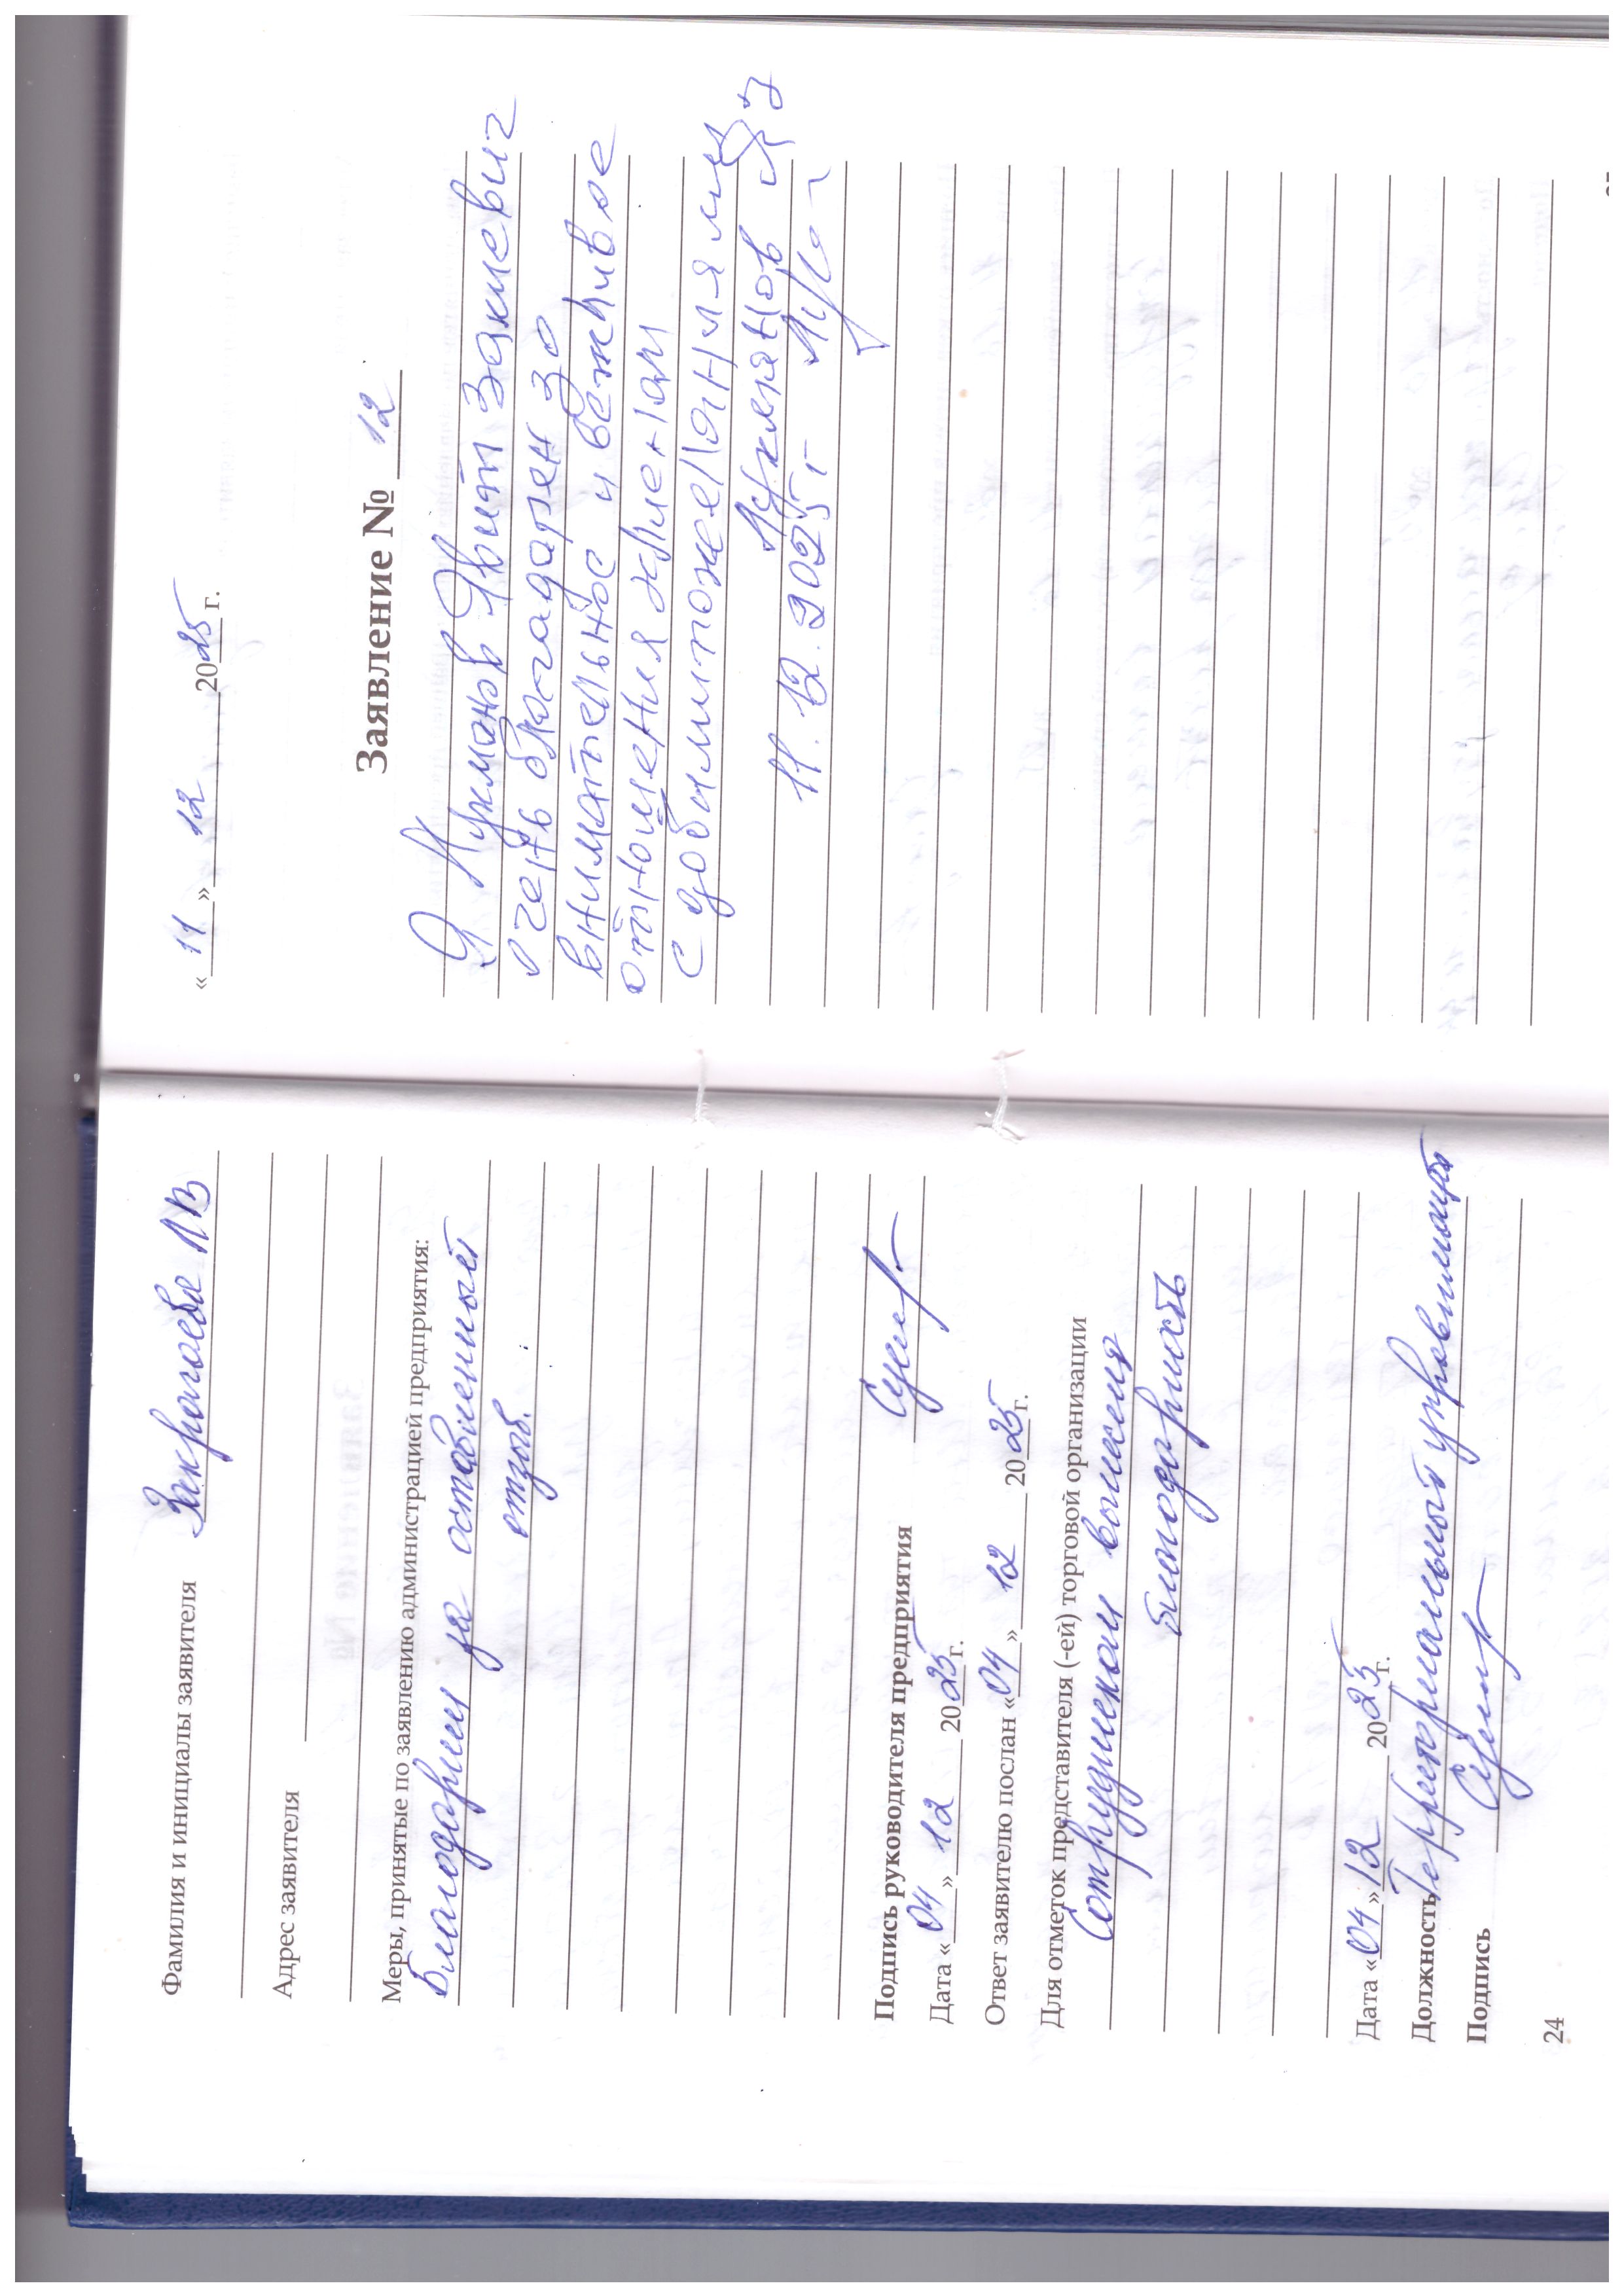 Фамилия и инициалы заявителя Закралаева ЛВ
Адрес заявителя
Меры, принятые по заявлению администрацией предприятия:
Благодарим за оставленный
отзыв.
Подпись руководителя предприятия
Дата «04» 12 2025 г.
Ответ заявителю послан «04» 12 2025 г.
Для отметок представителя (-ей) торговой организации
Сотрудникам вынесена
благодарность
Дата «04» 12 2025 г.
Должность Территориальный управляющий
Подпись
24
«11» 12 2025 г.
Заявление № 12
Я Лукманов Явит Закиевич
очень благодарен за
внимательное и вежливое
отношения клиентам
с добрыми пожеланиями
Лукманов ЯЗ
11.12.2025 г